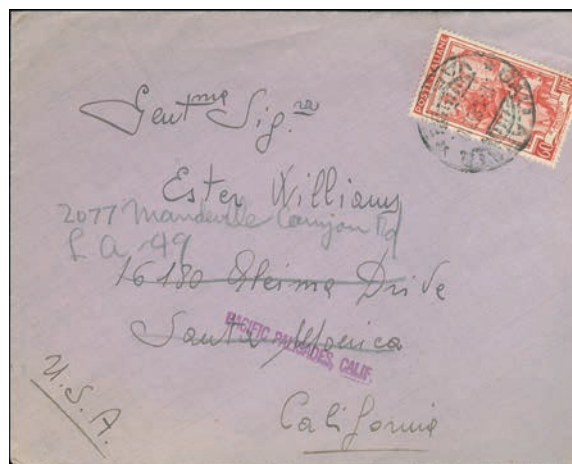 POSTE ITALIANE
60
Gent.me Sig.ra
Ester Williams
2077 Mandeville Canyon Rd
L A 49
16180 Drive
Santa Monica
PACIFIC PALISADES, CALIF.
California
U.S.A.